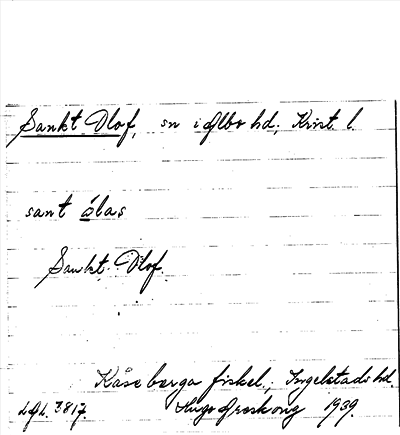 Sankt Olof, sn i Albo hd; Krist. l.
sant ólas
Sankt Olof.
Kåseberga fiskel., Ingelstads hd.
3817. Hugo Areskoug 1939.